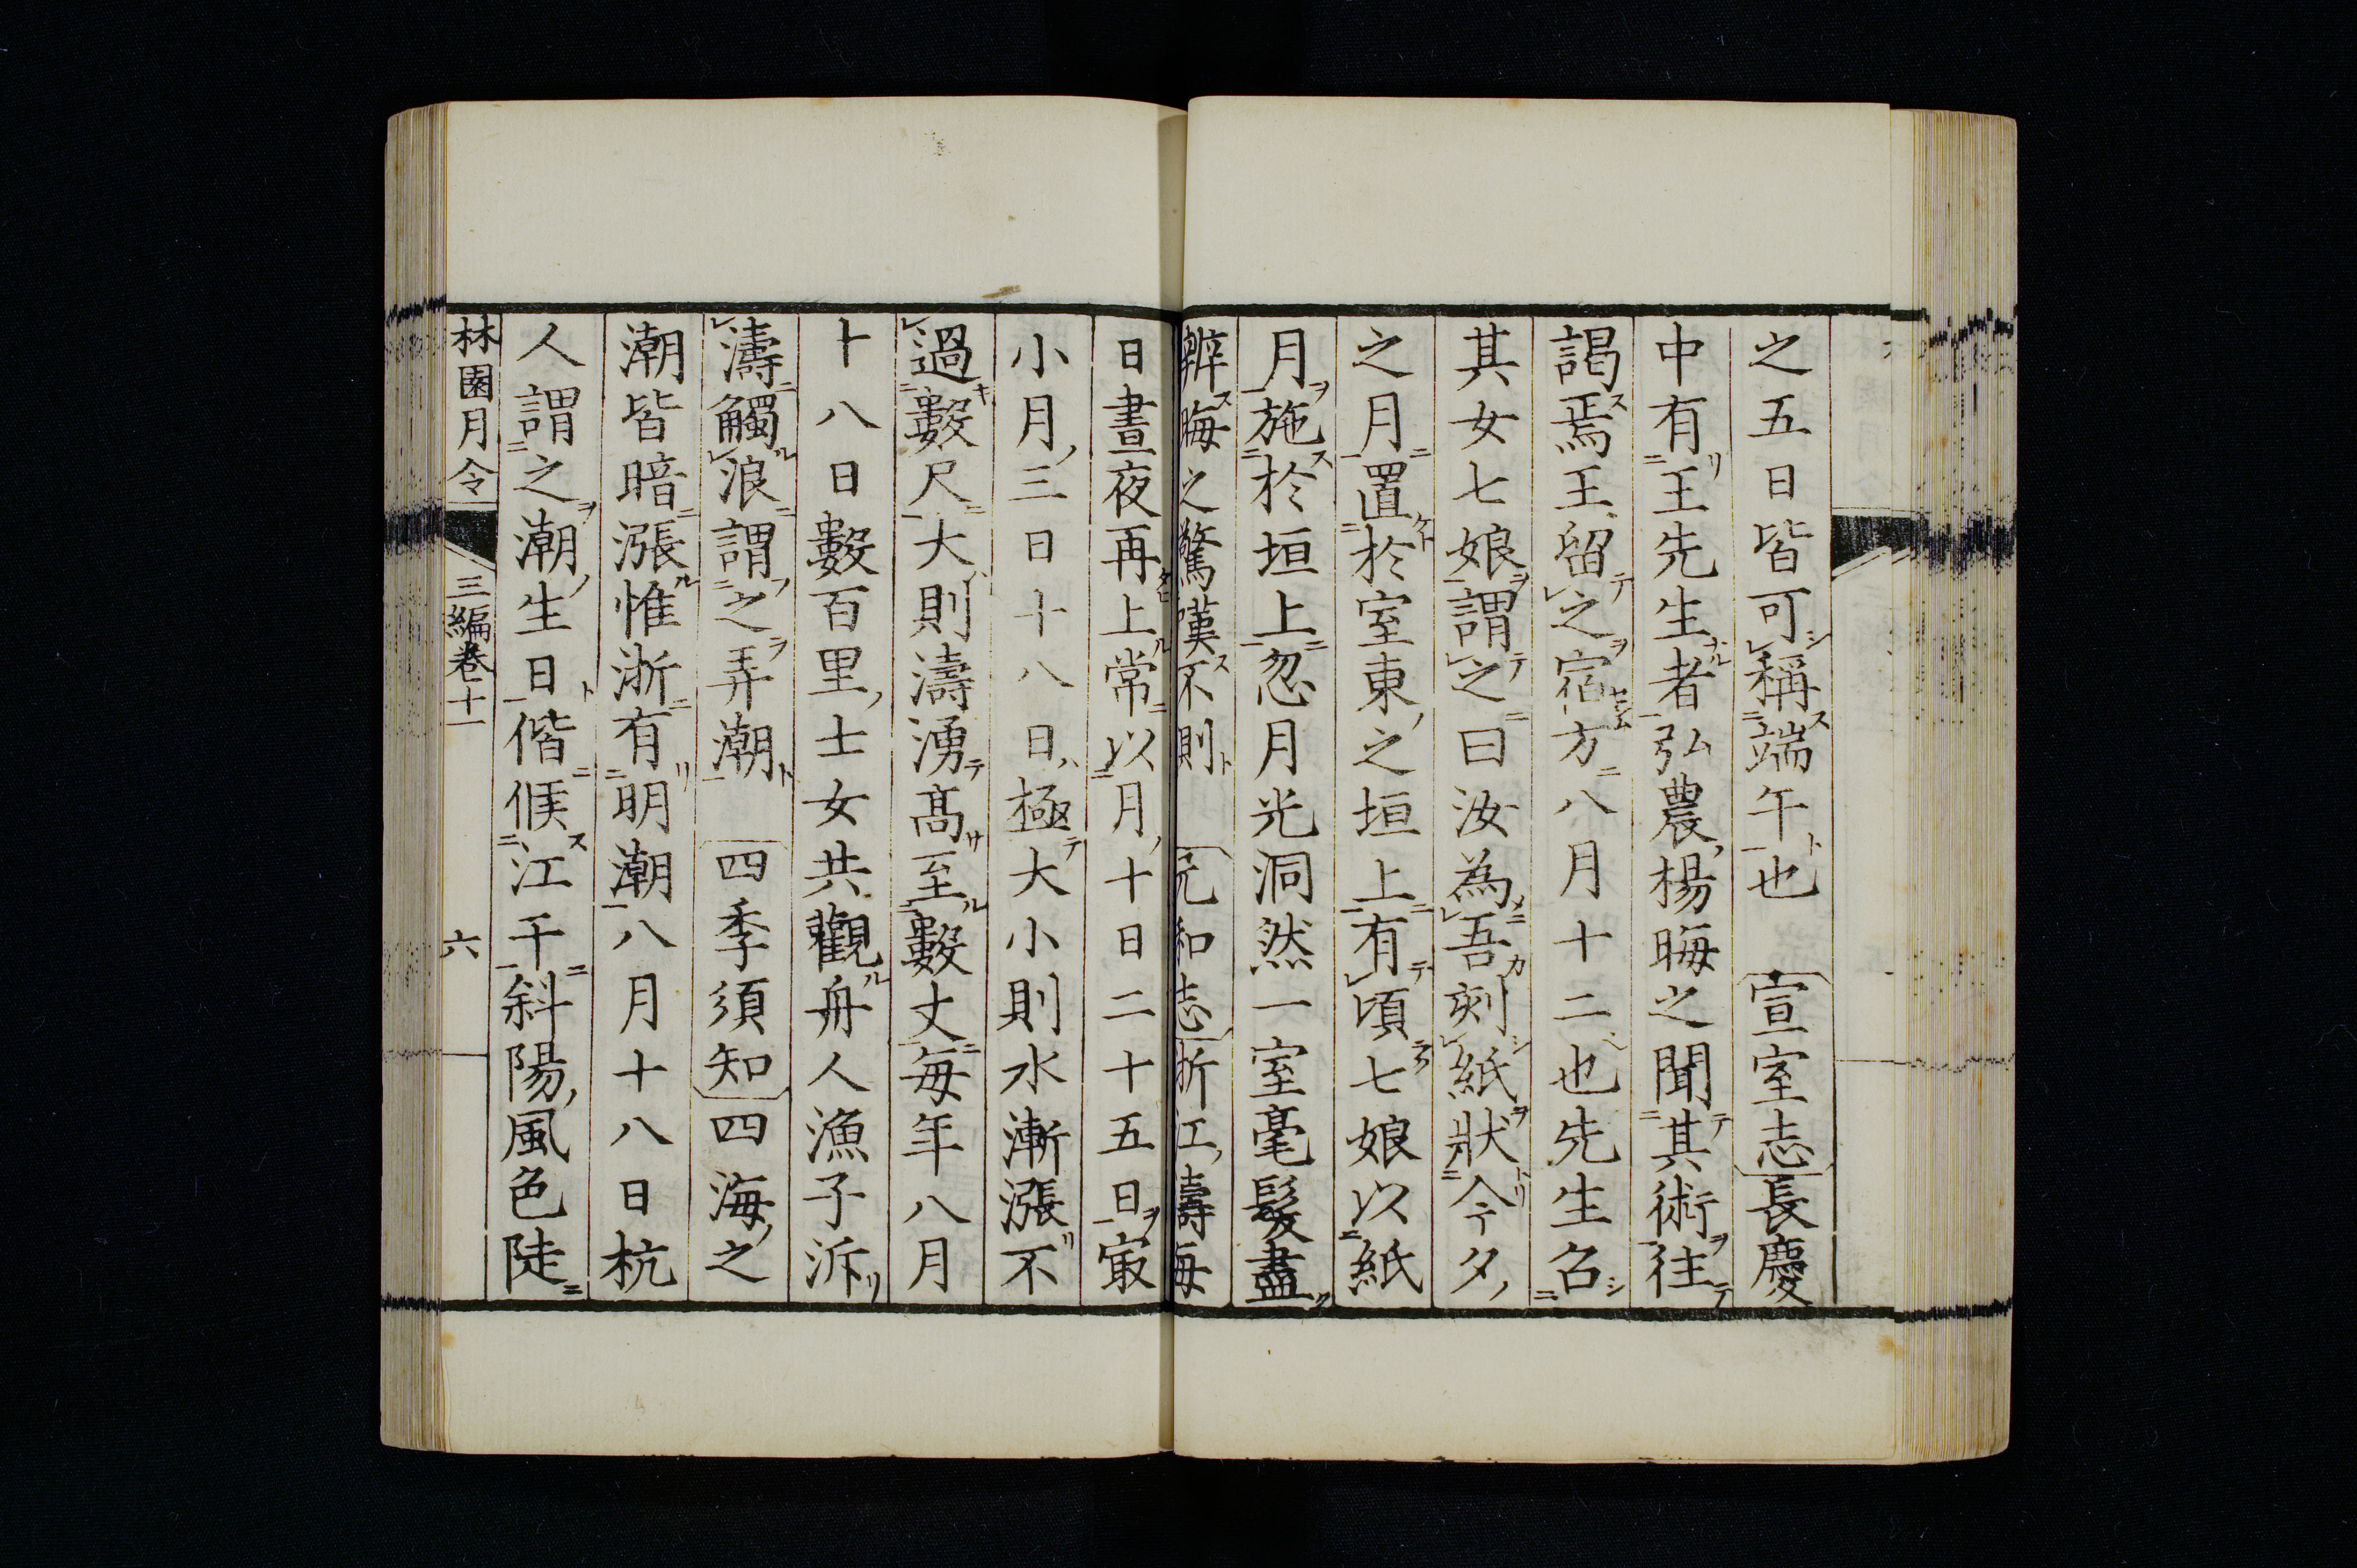 之五日皆可稱端午也　宣室志長慶
中有王先生者弘農楊晦之聞其術往
謁焉王留之宿方八月十二也先生召
其女七娘謂之曰汝為吾刻紙狀今夕
之月置於室東之垣上有頃七娘以紙
月施於垣上忽月光洞然一室毫髮盡
辨晦之驚嘆不則　元和志浙江濤每
日晝夜再上常以月十日二十五日㝡
小月三日十八日極大小則水漸漲不
過數尺大則濤湧髙至數丈每年八月
十八日數百里士女共觀舟人漁子泝
濤觸浪謂之弄潮　四季須知四海之
潮皆暗漲惟浙有明潮八月十八日杭
人謂之潮生日偕候江干斜陽風色陡
林園月令　三編卷十一　六